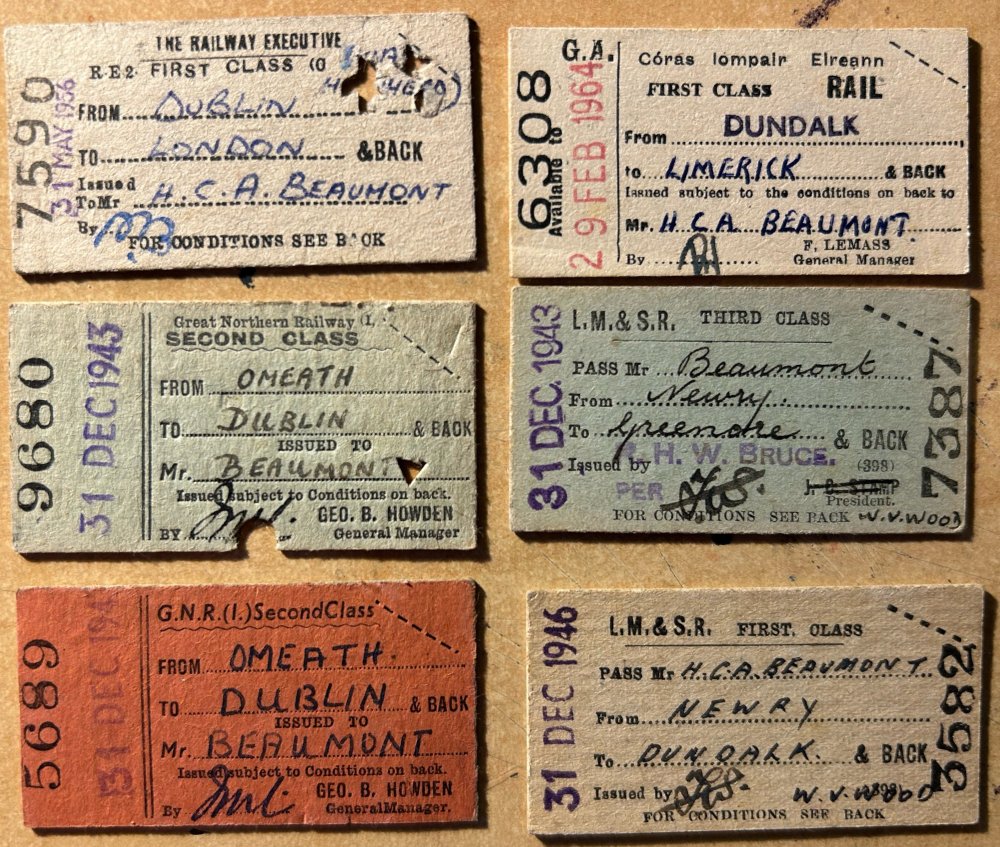 THE RAILWAY EXECUTIVE
R.E.2. FIRST CLASS (O
FROM DUBLIN
TO LONDON & BACK
Issued
To Mr H. C. A. BEAUMONT
By
FOR CONDITIONS SEE BACK
7590
31 MAY 1956
G.A.
6308
Available to
29 FEB 1964
Córas Iompair Eireann
FIRST CLASS RAIL
From DUNDALK
to LIMERICK & BACK
Issued subject to the conditions on back to
Mr. H. C. A. BEAUMONT.
F. LEMASS
By General Manager
9680
31 DEC 1943
Great Northern Railway (I.
SECOND CLASS
FROM OMEATH
TO DUBLIN & BACK
ISSUED TO
Mr. BEAUMONT
Issued subject to Conditions on back.
GEO. B. HOWDEN
BY General Manager
31 DEC 1943
L.M.& S.R. THIRD CLASS
PASS Mr Beaumont
From Newry.
To Greenore & BACK
Issued by H. W. BRUCE. (398)
PER President.
FOR CONDITIONS SEE BACK W.V.WOOD
7387
5689
31 DEC 194
G.N.R.(I.) Second Class
FROM OMEATH.
TO DUBLIN & BACK
ISSUED TO
Mr. BEAUMONT
Issued subject to Conditions on back.
GEO. B. HOWDEN
By General Manager.
31 DEC 1946
L.M.& S.R. FIRST. CLASS
PASS Mr H.C.A. BEAUMONT.
From NEWRY
To DUNDALK. & BACK
Issued by W.V.WOOD (398)
FOR CONDITIONS SEE BACK
3582